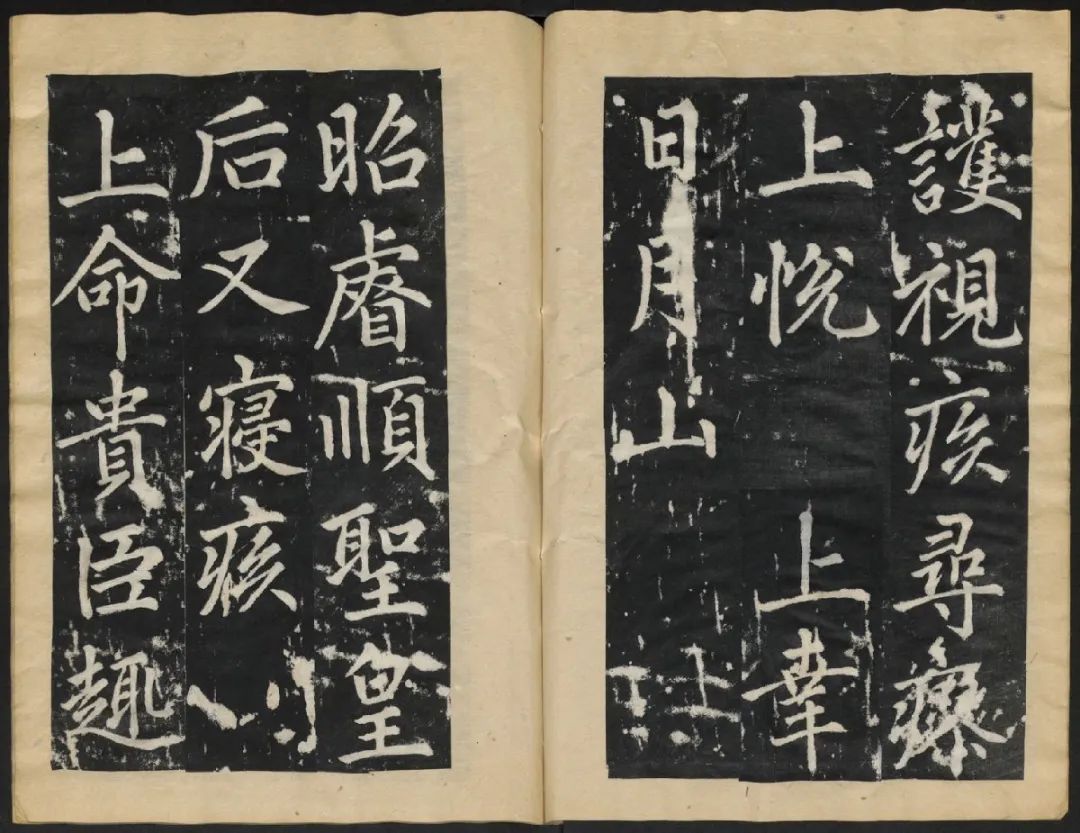 護視疾尋瘳
上悅上幸
日月山
昭睿順聖皇
后又寢疾
上命貴臣趣